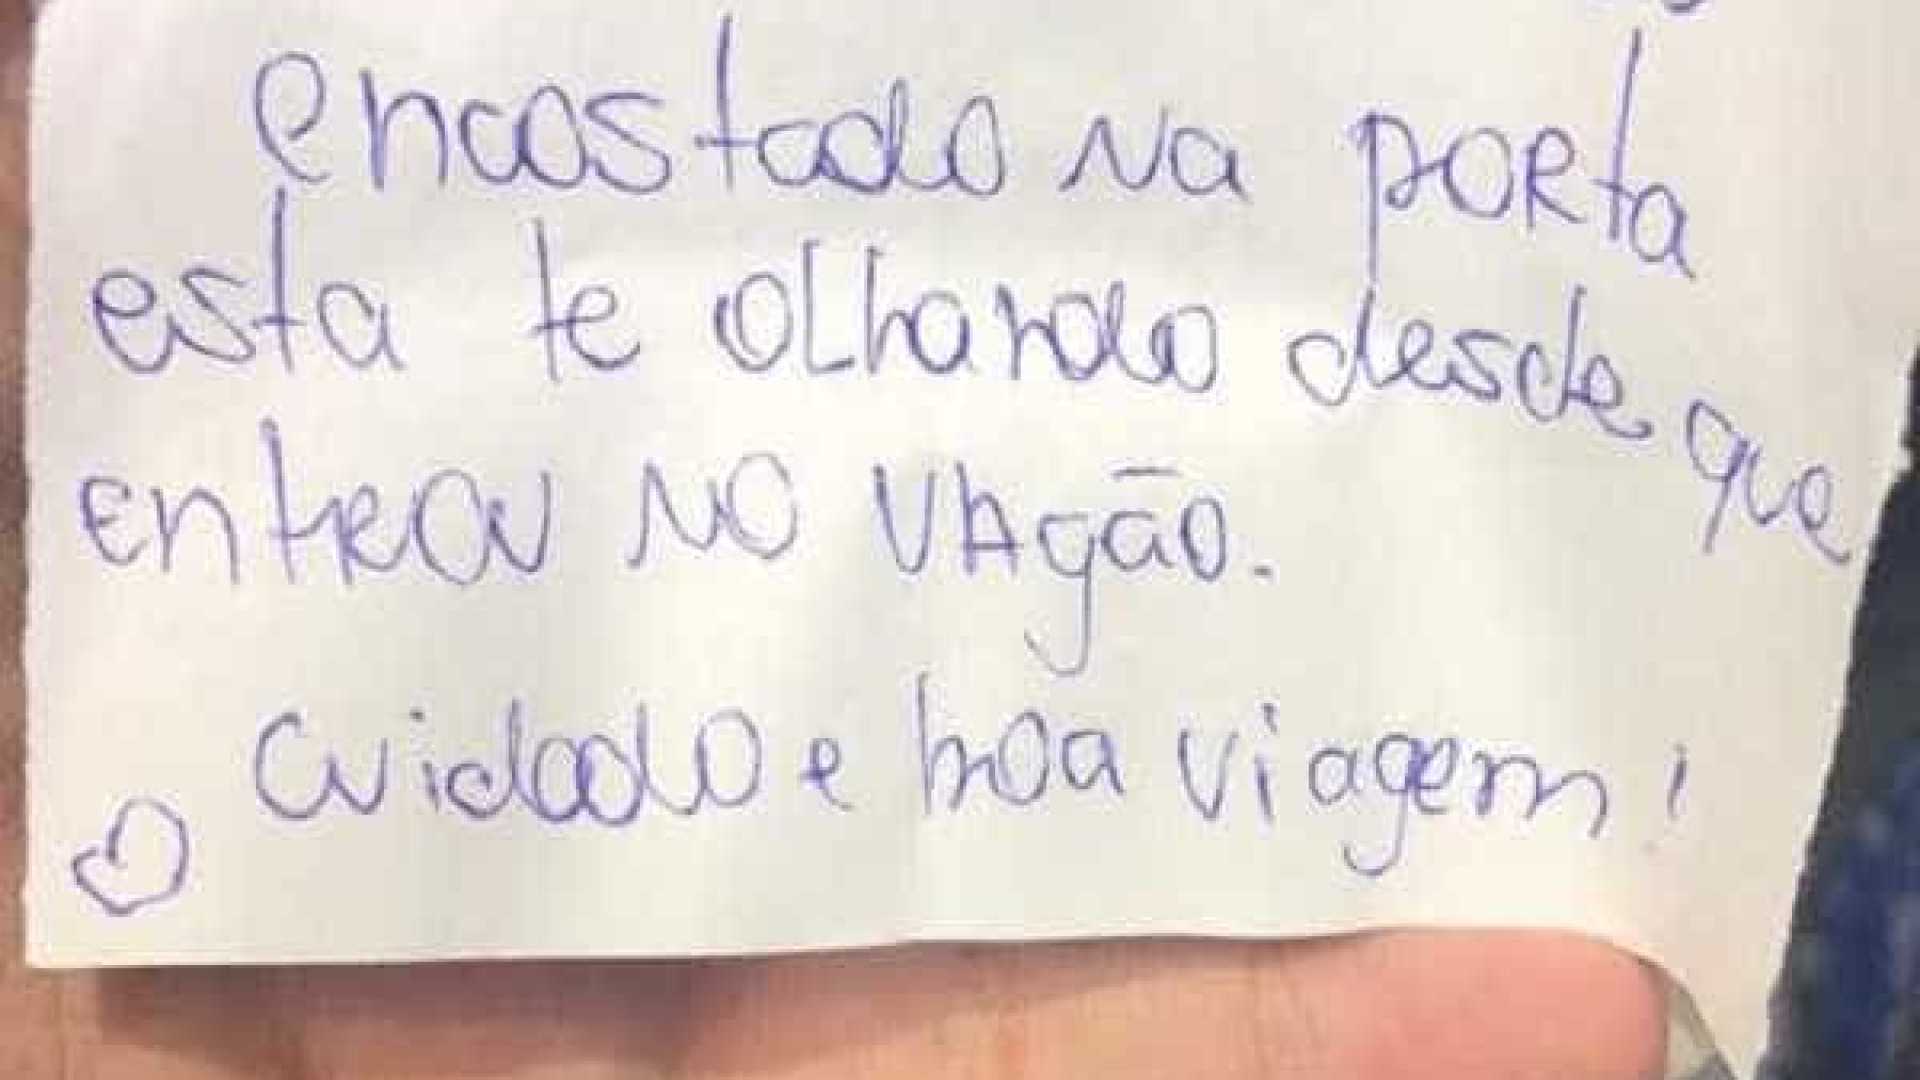 encostado na porta
esta te olhando desde que
entrou no vagão.
cuidado e boa viagem!